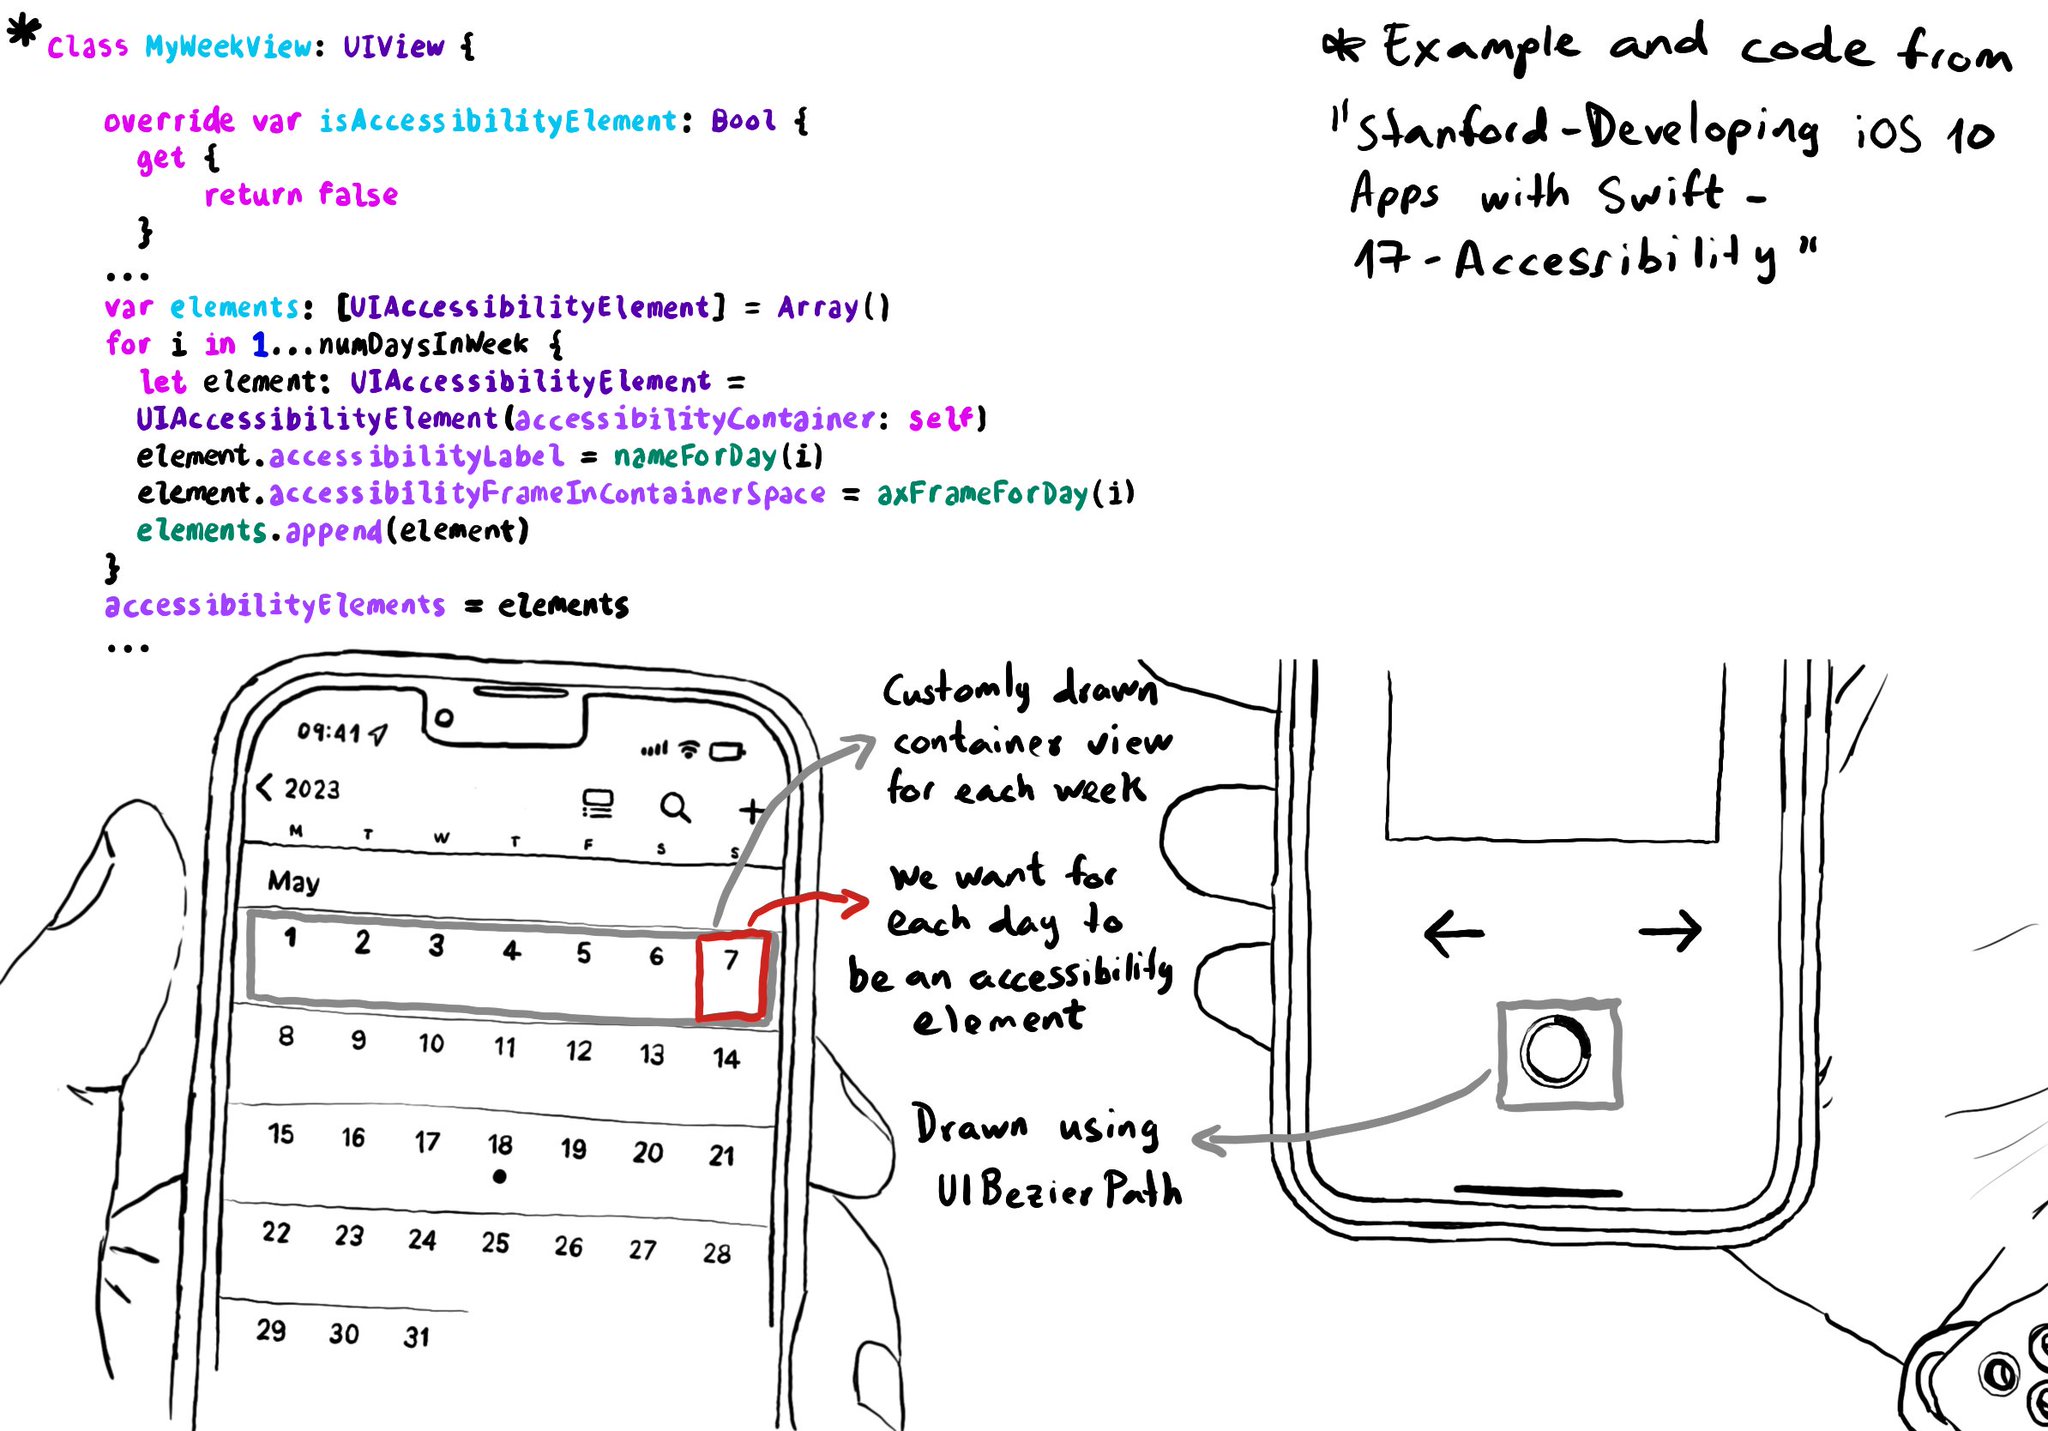 * class MyWeekView: UIView {
override var isAccessibilityElement: Bool {
get {
return false
}
...
var elements: [UIAccessibilityElement] = Array()
for i in 1...numDaysInWeek {
let element: UIAccessibilityElement =
UIAccessibilityElement(accessibilityContainer: self)
element.accessibilityLabel = nameForDay(i)
element.accessibilityFrameInContainerSpace = axFrameForDay(i)
elements.append(element)
}
accessibilityElements = elements
...
* Example and code from
"Stanford-Developing iOS 10
Apps with Swift -
17-Accessibility"
09:41
< 2023
M T W T F S S
May
1 2 3 4 5 6 7
8 9 10 11 12 13 14
15 16 17 18 19 20 21
22 23 24 25 26 27 28
29 30 31
Customly drawn
container view
for each week
We want for
each day to
be an accessibility
element
Drawn using
UIBezierPath